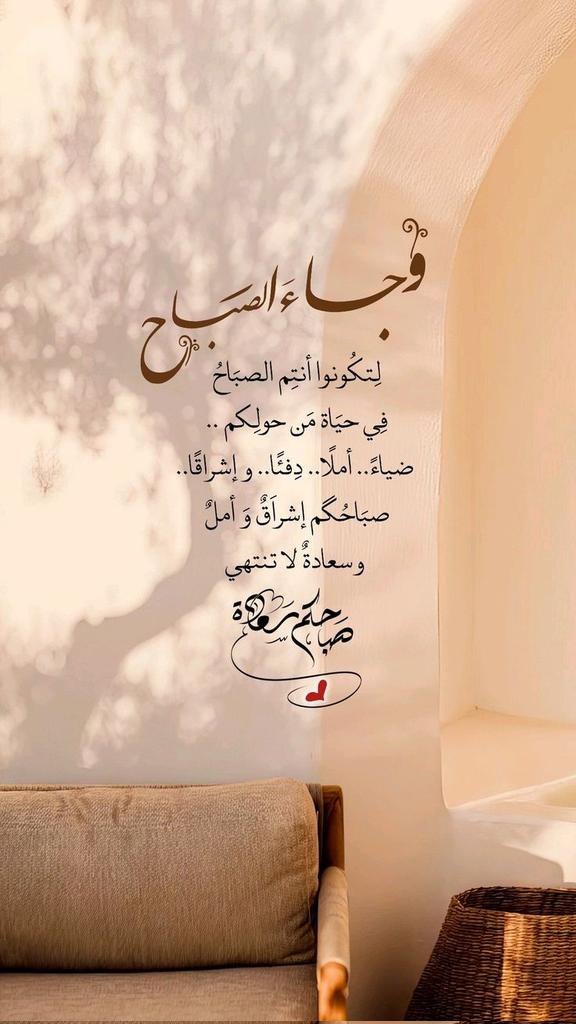 وجاءَ الصبَاح
لِتكُونوا أنتِم الصبَاحُ
فِي حيَاة مَن حولِكم ..
ضياءً.. أملًا.. دِفئًا.. و إشراقًا..
صبَاحُكُم إشراَقٌ وَ أملٌ
وسعادةٌ لا تنتهي
صباحكم سعادة